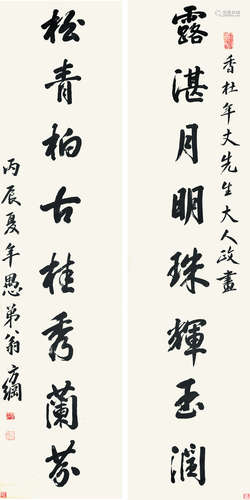 香杜年丈先生大人政画
露湛月明珠輝玉潤
松青柏古桂秀蘭芬
丙辰夏年愚弟翁方綱